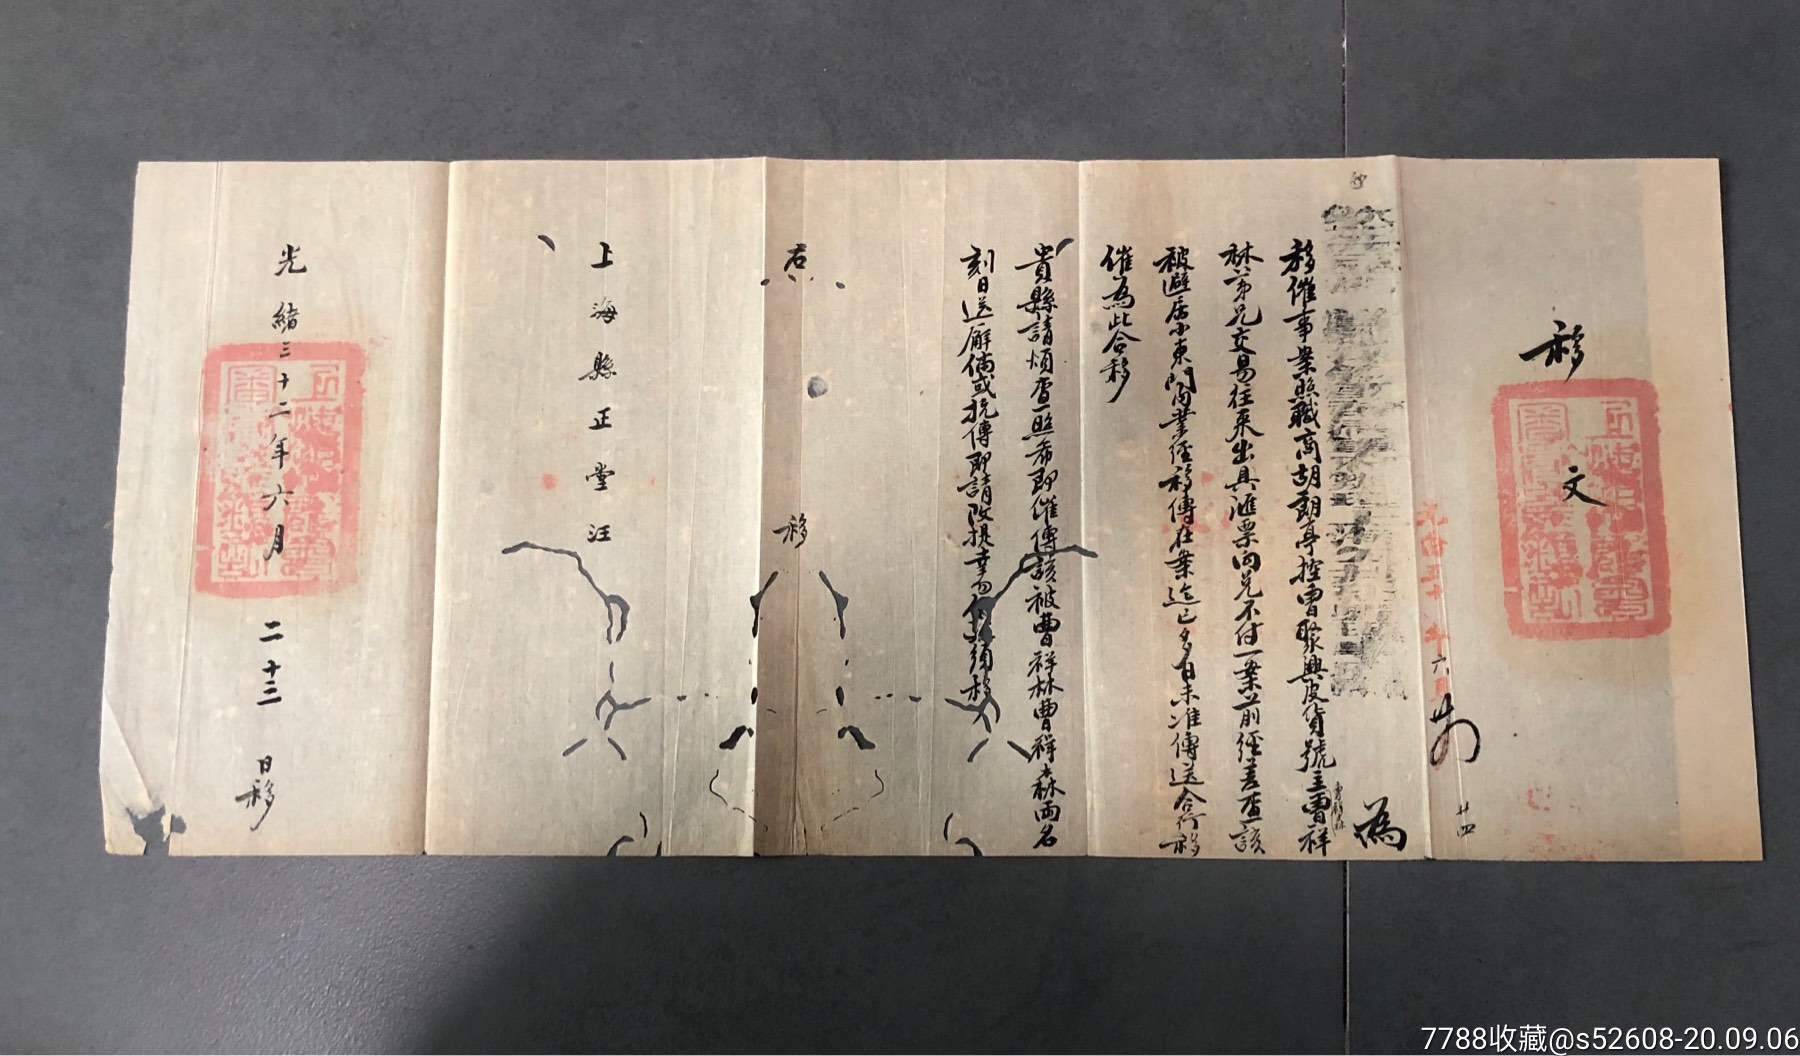 移文
光緒三十 年六月
廿四
為
移催事案照職商胡朗亭控曹聚興皮貨號主曹祥
林等弟兄交易往來出具滙票向兌不付一案前經差查該
被避居小東門開業經移傳在案迄已多日未准傳送合行移
催為此合移
貴縣請煩查照希即催傳該被曹祥林曹祥森両名
刻日送廨倘或抗傳即請改提幸勿 須移
右移
上海縣正堂汪
光緒三十二年六月二十三日移
7788收藏@s52608-20.09.06